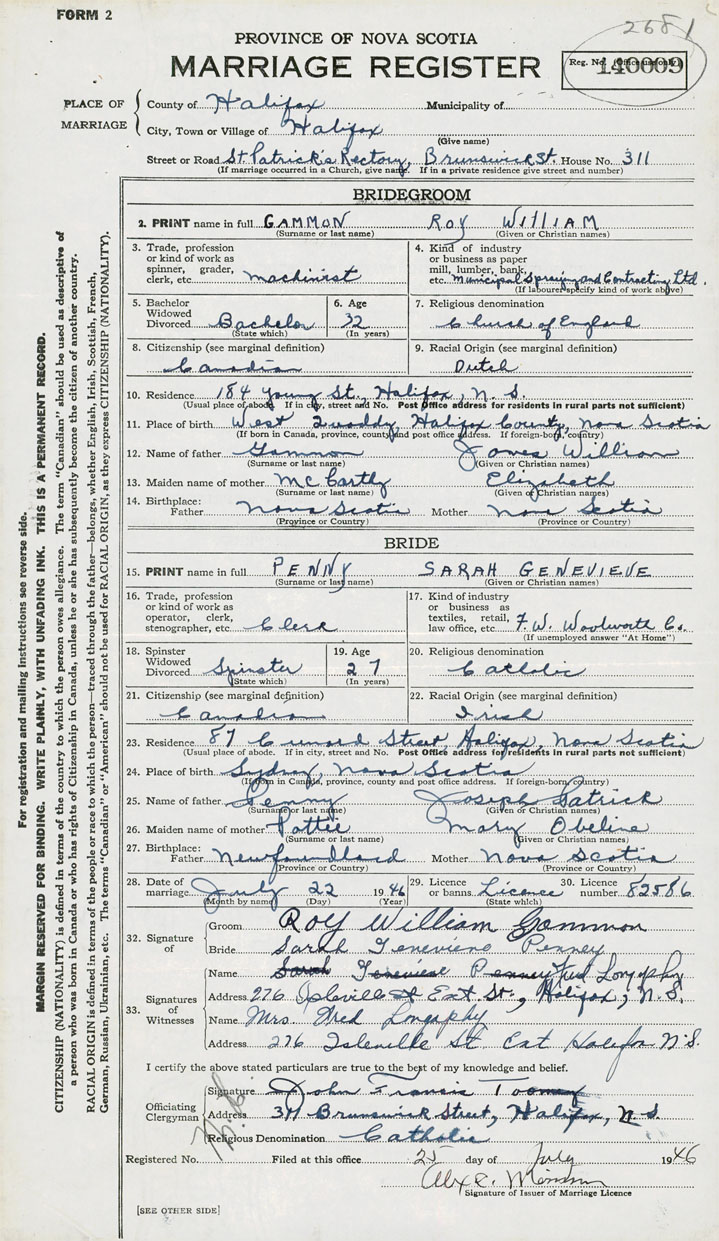 FORM 2
2681
PROVINCE OF NOVA SCOTIA
MARRIAGE REGISTER
Reg. No. (Office use only)
140009
PLACE OF MARRIAGE
County of Halifax Municipality of
City, Town or Village of Halifax
(Give name)
Street or Road St. Patrick's Rectory, Brunswick St. House No. 311
(If marriage occurred in a Church, give name. If in a private residence give street and number)
BRIDEGROOM
2. PRINT name in full GAMMON ROY WILLIAM
(Surname or last name) (Given or Christian names)
3. Trade, profession or kind of work as spinner, grader, clerk, etc. Machinist
4. Kind of industry or business as paper mill, lumber, bank, etc. Municipal Spraying and Contracting Ltd.
(If labourer specify kind of work above)
5. Bachelor Widowed Divorced Bachelor
(State which)
6. Age 32
(In years)
7. Religious denomination
Church of England
8. Citizenship (see marginal definition)
Canadian
9. Racial Origin (see marginal definition)
Dutch
10. Residence 184 Young St., Halifax, N. S.
(Usual place of abode. If in city, street and No. Post Office address for residents in rural parts not sufficient)
11. Place of birth West Quoddy, Halifax County, Nova Scotia
(If born in Canada, province, county and post office address. If foreign-born, country)
12. Name of father Gammon James William
(Surname or last name) (Given or Christian names)
13. Maiden name of mother McCarthy Elizabeth
(Surname or last name) (Given or Christian names)
14. Birthplace:
Father Nova Scotia Mother Nova Scotia
(Province or Country) (Province or Country)
BRIDE
15. PRINT name in full PENNY SARAH GENEVIEVE
(Surname or last name) (Given or Christian names)
16. Trade, profession or kind of work as operator, clerk, stenographer, etc. Clerk
17. Kind of industry or business as textiles, retail, law office, etc. F. W. Woolworth Co.
(If unemployed answer "At Home")
18. Spinster Widowed Divorced Spinster
(State which)
19. Age 27
(In years)
20. Religious denomination
Catholic
21. Citizenship (see marginal definition)
Canadian
22. Racial Origin (see marginal definition)
Irish
23. Residence 87 Cunard Street, Halifax, Nova Scotia
(Usual place of abode. If in city, street and No. Post Office address for residents in rural parts not sufficient)
24. Place of birth Sydney, Nova Scotia
(If born in Canada, province, county and post office address. If foreign-born, country)
25. Name of father Penny Joseph Patrick
(Surname or last name) (Given or Christian names)
26. Maiden name of mother Pottie Mary Obeline
(Surname or last name) (Given or Christian names)
27. Birthplace:
Father Newfoundland Mother Nova Scotia
(Province or Country) (Province or Country)
28. Date of marriage July 22 1946
(Month by name) (Day) (Year)
29. Licence or banns Licence
(State which)
30. Licence number 82586
32. Signature of
Groom Roy William Gammon
Bride Sarah Genevieve Penney
33. Signatures of Witnesses
Name Sarah Genevieve Penney Fred Longaphy
Address 276 Isleville St Ext St., Halifax, N.S.
Name Mrs Fred Longaphy
Address 276 Isleville St Ext Halifax N.S.
I certify the above stated particulars are true to the best of my knowledge and belief.
Officiating Clergyman
Signature John Francis Toomey
Address 311 Brunswick Street, Halifax, N.S.
Religious Denomination Catholic
Registered No. Filed at this office 25 day of July 1946
Signature of Issuer of Marriage Licence
[SEE OTHER SIDE]
For registration and mailing instructions see reverse side.
MARGIN RESERVED FOR BINDING. WRITE PLAINLY, WITH UNFADING INK. THIS IS A PERMANENT RECORD.
CITIZENSHIP (NATIONALITY) is defined in terms of the country to which the person owes allegiance. The term "Canadian" should be used as descriptive of
a person who was born in Canada or who has rights of Citizenship in Canada, unless he or she has subsequently become the citizen of another country.
RACIAL ORIGIN is defined in terms of the people or race to which the person—traced through the father—belongs, whether English, Irish, Scottish, French,
German, Russian, Ukrainian, etc. The terms "Canadian" or "American" should not be used for RACIAL ORIGIN, as they express CITIZENSHIP (NATIONALITY).